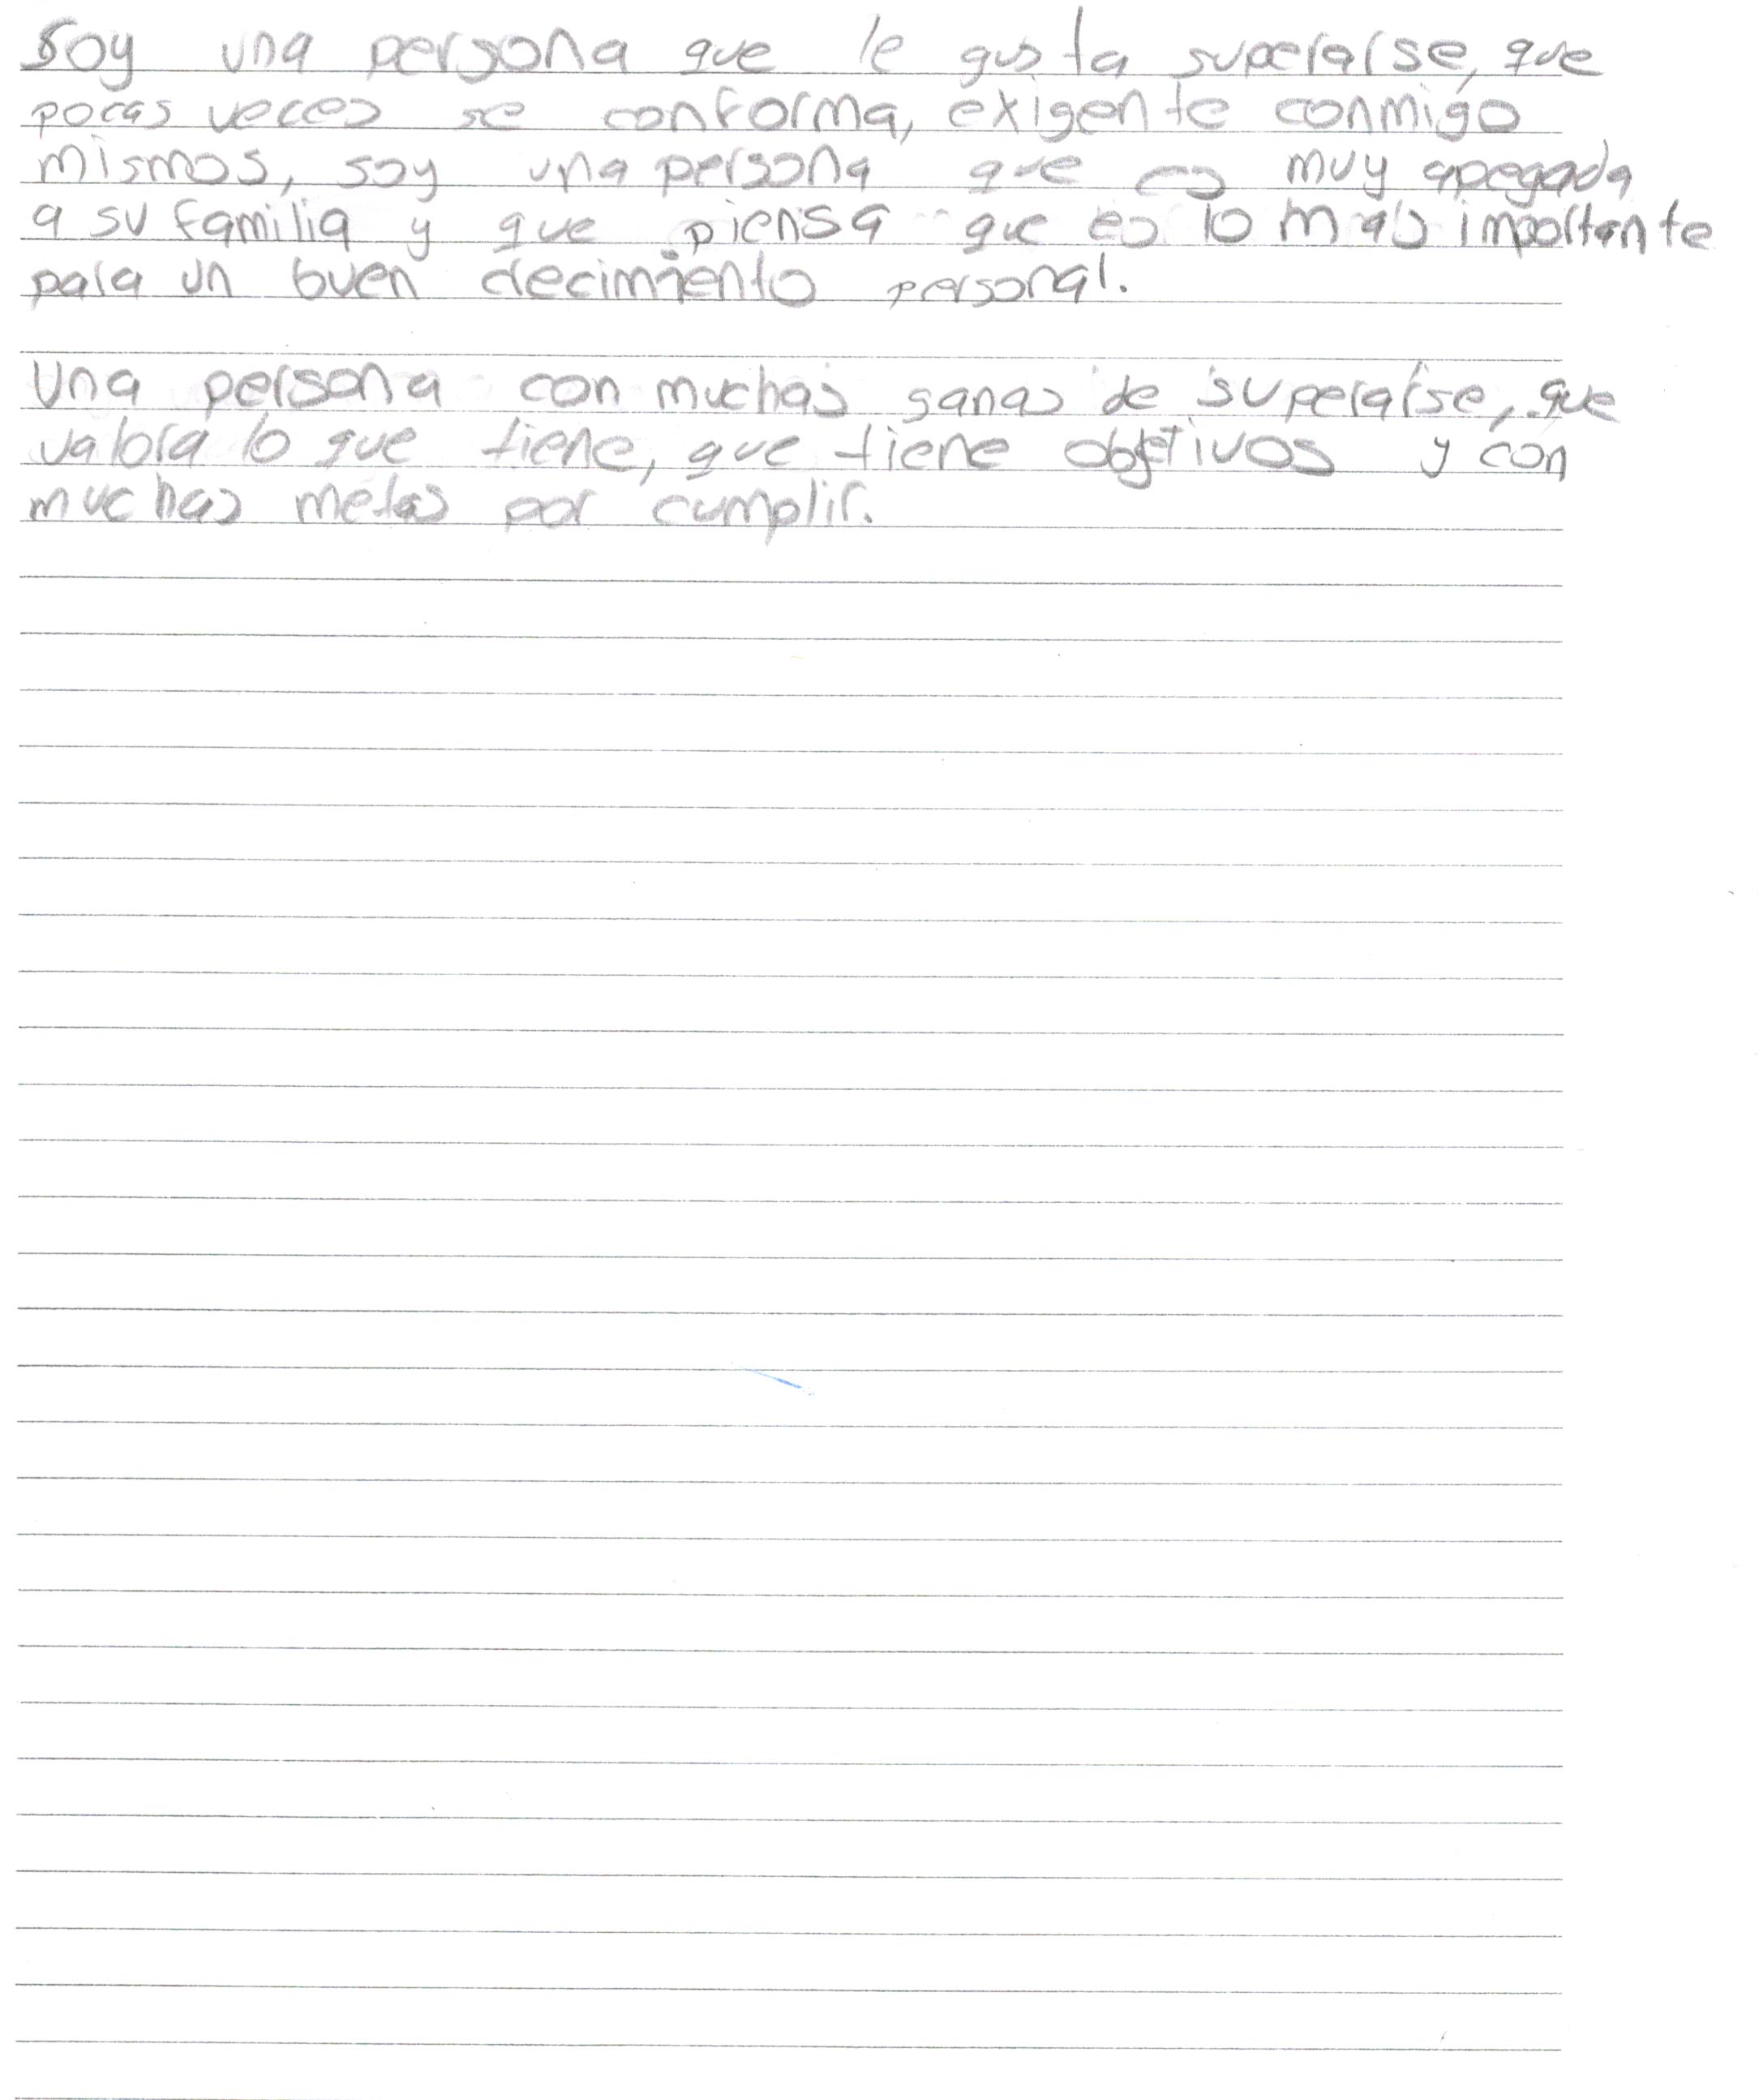 Soy una persona que le gusta superarse, que
pocas veces se conforma, exigente conmigo
mismos, soy una persona que es muy apegada
a su familia y que piensa que es lo mas importante
para un buen crecimiento personal.
Una persona con muchas ganas de superarse, que
valora lo que tiene, que tiene objetivos y con
muchas metas por cumplir.